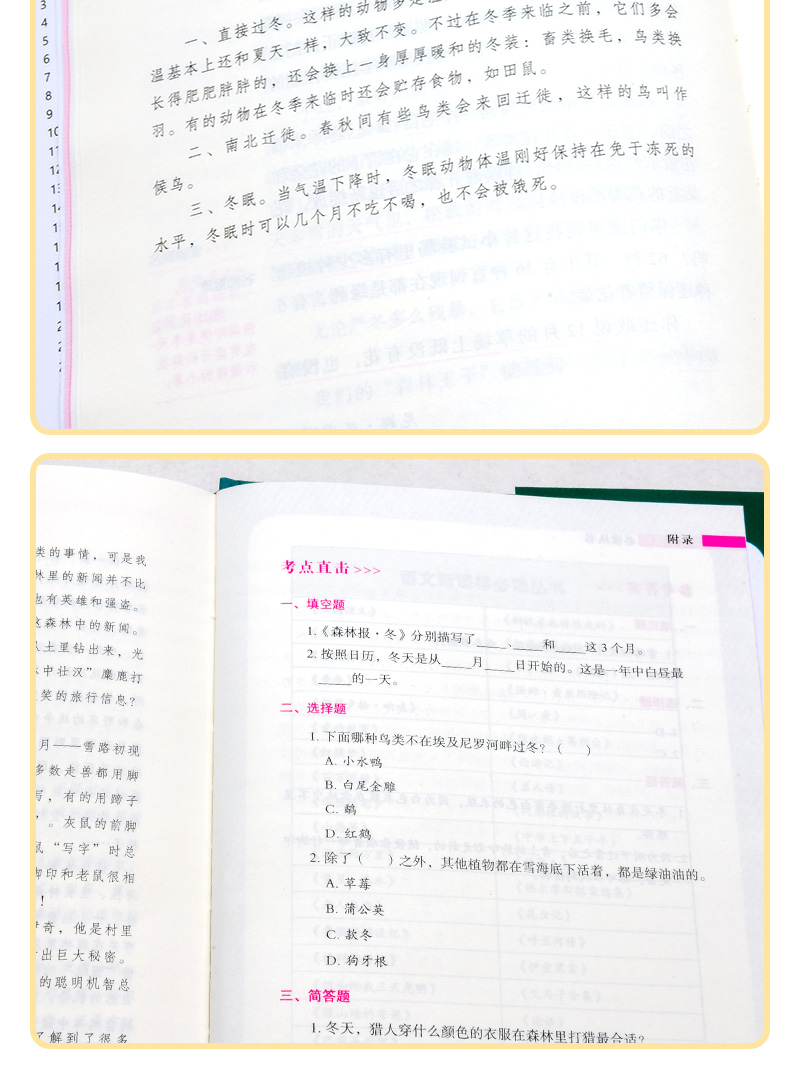 3
4
5
6
7
8
9
10
11
12
13
14
一、直接过冬。这样的动物多是
温基本上还和夏天一样，大致不变。不过在冬季来临之前，它们多会
长得肥肥胖胖的，还会换上一身厚厚暖和的冬装：畜类换毛，鸟类换
羽。有的动物在冬季来临时还会贮存食物，如田鼠。
二、南北迁徙。春秋间有些鸟类会来回迁徙，这样的鸟叫作
候鸟。
三、冬眠。当气温下降时，冬眠动物体温刚好保持在免于冻死的
水平，冬眠时可以几个月不吃不喝，也不会被饿死。
类的事情，可是我
林里的新闻并不比
也有英雄和强盗。
这森林中的新闻。
从土里钻出来，光
水中壮汉”麋鹿打
笑的旅行信息？
月——雪路初现
多数走兽都用脚
写，有的用蹄子
”。灰鼠的前脚
鼠“写字”时总
脚印和老鼠很相
！
奇，他是村里
出巨大秘密。
的聪明机智总
了解到了很多
附录
考点直击>>>
一、填空题
1.《森林报·冬》分别描写了____、____和____这3个月。
2. 按照日历，冬天是从____月____日开始的。这是一年中白昼最
____的一天。
二、选择题
1. 下面哪种鸟类不在埃及尼罗河畔过冬？（　）
A. 小水鸭
B. 白尾金雕
C. 鹬
D. 红鹤
2. 除了（　）之外，其他植物都在雪海底下活着，都是绿油油的。
A. 草莓
B. 蒲公英
C. 款冬
D. 狗牙根
三、简答题
1. 冬天，猎人穿什么颜色的衣服在森林里打猎最合适？